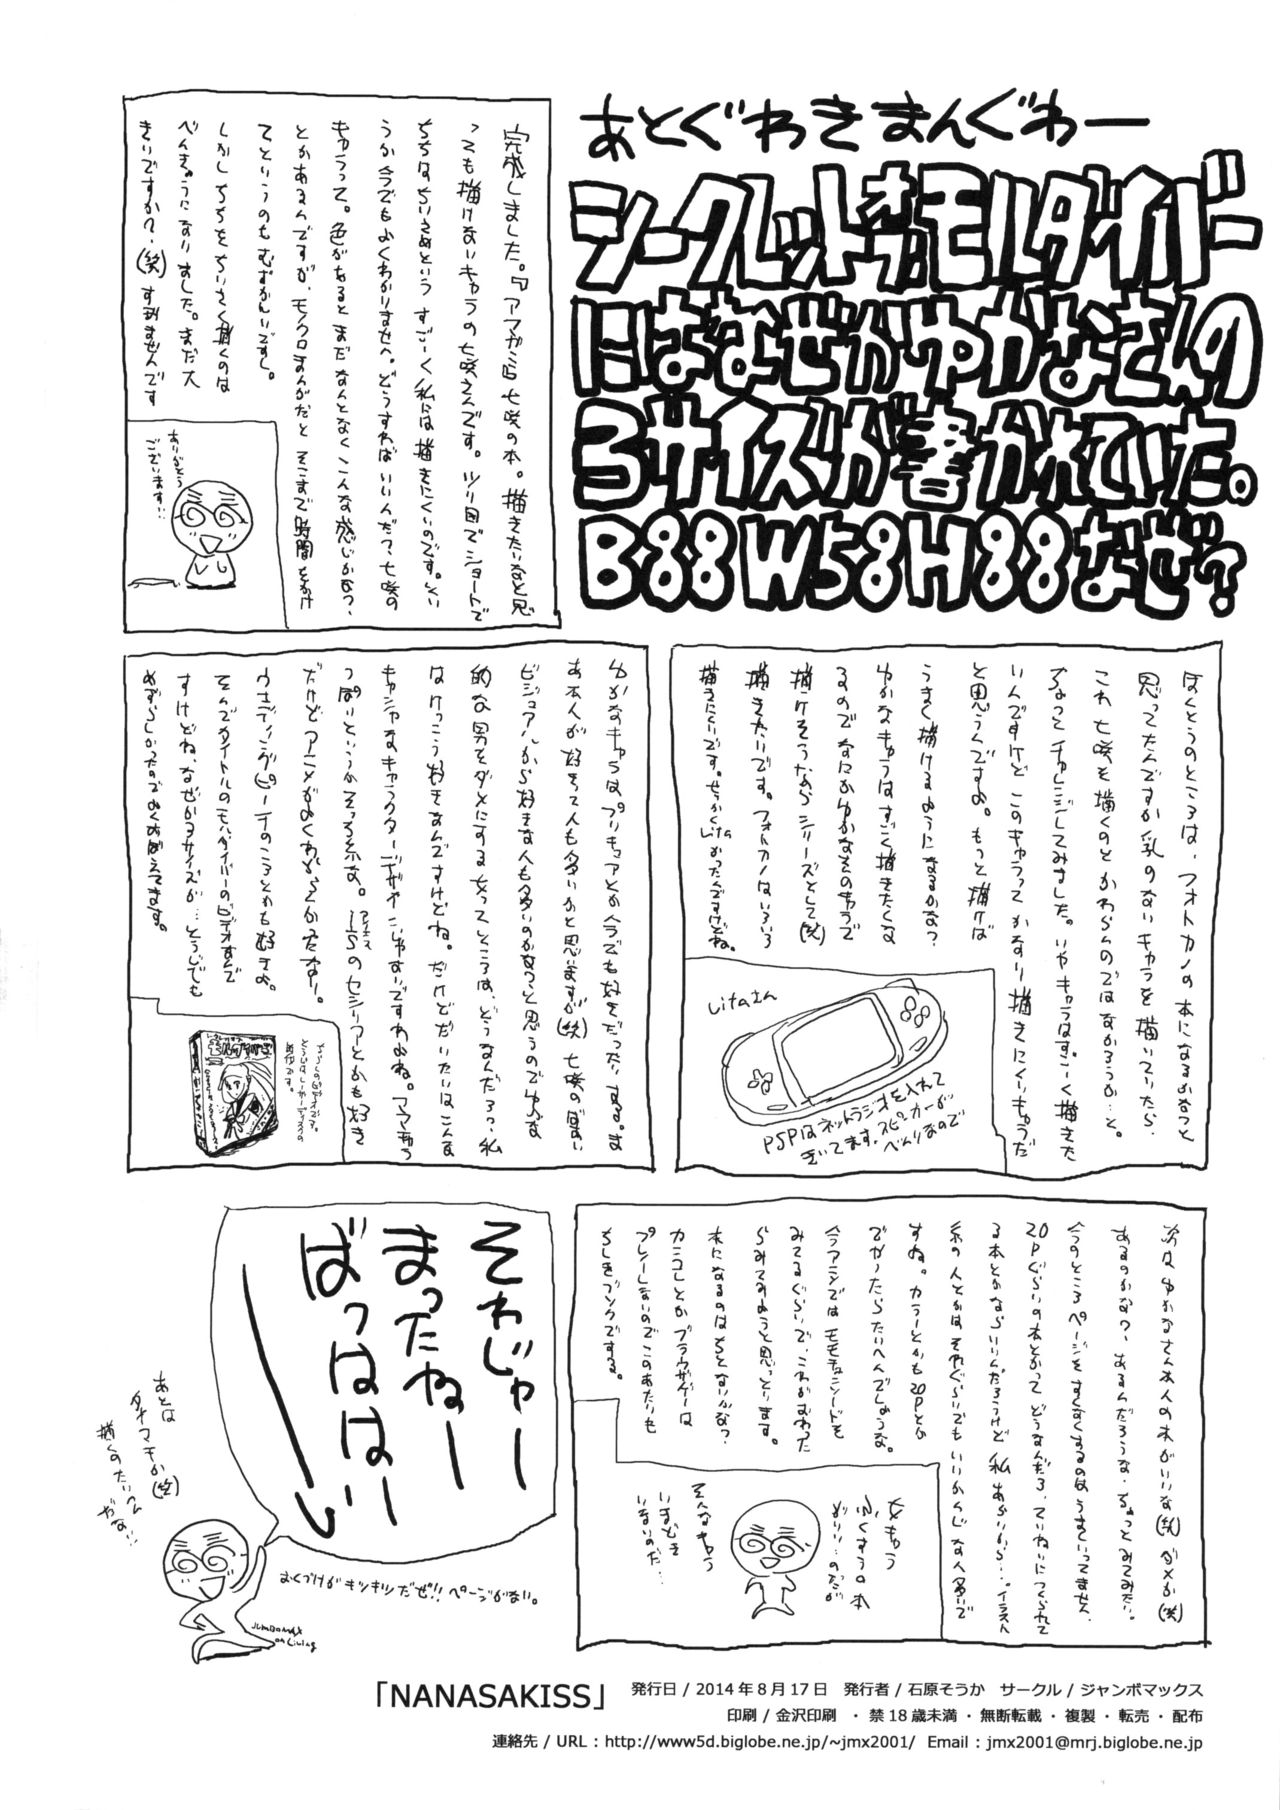 あとぐわきまんぐわー
シークレットオブモルダイバー
にはなぜかゆかなさんの
3サイズが書かれていた。
B88W58H88なぜ?
完成しました。『アマガミ』七咲の本。描きたいなと思
っても描けないキャラの七咲さんです。ツリ目でショートで
ちちはちいさめという すごーく私には描きにくいのです。てい
うか今でもよくわかりませへ。どうすればいいんだ?七咲の
キャラって。色があるとまだなんとなくこんな感じかな?、
とかあるんですが、モノクロまんがだとそこまで時間をかけ
てというのもむずかしいですし。
しかしちちをちいさく描くのは
べんきょうになりました。まだ大
きいですか?(笑)すみませんです
ありがとう
ございます…
ほんとうのところは、フォトカノの本になるかなっと
思ってたんですが乳のないキャラを描いていたら、
これ七咲を描くのとかわらんのではなかろうか…と。
なってチャレンジしてみました。いやキャラはすごーく描きた
いんですけどこのキャラってかなり描きにくいキャラだ
と思うんですよ。もっと描けば
うまく描けるようになるかな?
ゆかなキャラはすごく描きたくな
るのでなにかゆかなそのもので
描けそうなからシリーズとして(笑)
描きたいです。フォトカノはいろいろ
描きにくいです。せっかくLitaかったんですけどね。
Litaさん
PSPはネットラジオを入れて
きいてます。スピーカーが
べんりなので
ゆかなキャラは、プリキュアとか今でも好きだったりする。ま
あ本人が好きって人も多いかと思いますが(笑)七咲のばあい
ビジュアルから好きな人も多いのかなっと思うのでゆかな
的な男をダメにする女ってところは、どうなんだろっ、私
はけっこう好きなんですけどね。だけどだいたいはこんな
キャシャなキャラクターデザインじゃないですわよね。ママキャラ
っぽいというかそっち系な。ISのセシリアとかも好き
だけどアニメがよくわからんかったなー。
ウエディングピーチのころとかも好きよ。
そんでタイトルのモルダイバーのビデオなんで
すけどね、なぜか3サイズが…とうじでも
めずらしかったのでよくおぼえてます。
次はゆかなさん本人の本がいいな(笑)ダメか(笑)
あるのかな?、あるんだろうな、ちょっとみてみたい。
今のところページをすくなくするのはうまくいってません、
20Pぐらいの本とかってどうなんだろ、ていねいにつくられて
る本とかならいいんだろうけど私あらいから…。イラスト
系の人とかはそれぐらいでもいいかんじな人多いで
すね。カラーとかも20Pとか
でかったらたいへんでしょうな。
今アニメではモモキュンソードを
みてるぐらいで、これがおわった
らみてみようと思っとります。
本になるのはちとないかな?
カンコレとかブラウザゲーは
プレーしないのでこのあたりも
ちしきブソクでする。
女キャラ
ふくすうの本
がいい…のだが
そんなキャラ
いまどき
いないのだ…
それじゃー
まったねー
ばっはは〜い
あとは
タイマモか(笑)
描くのたいへん
だな…
おくづけがギリギリだぜ!! ページがない。
JUMBOMAX
on Living
「NANASAKISS」 発行日 / 2014年8月17日 発行者 / 石原そうか サークル / ジャンボマックス
印刷 / 金沢印刷 ・ 禁18歳未満 ・ 無断転載 ・ 複製 ・ 転売 ・ 配布
連絡先 / URL : http://www5d.biglobe.ne.jp/~jmx2001/ Email : jmx2001@mrj.biglobe.ne.jp